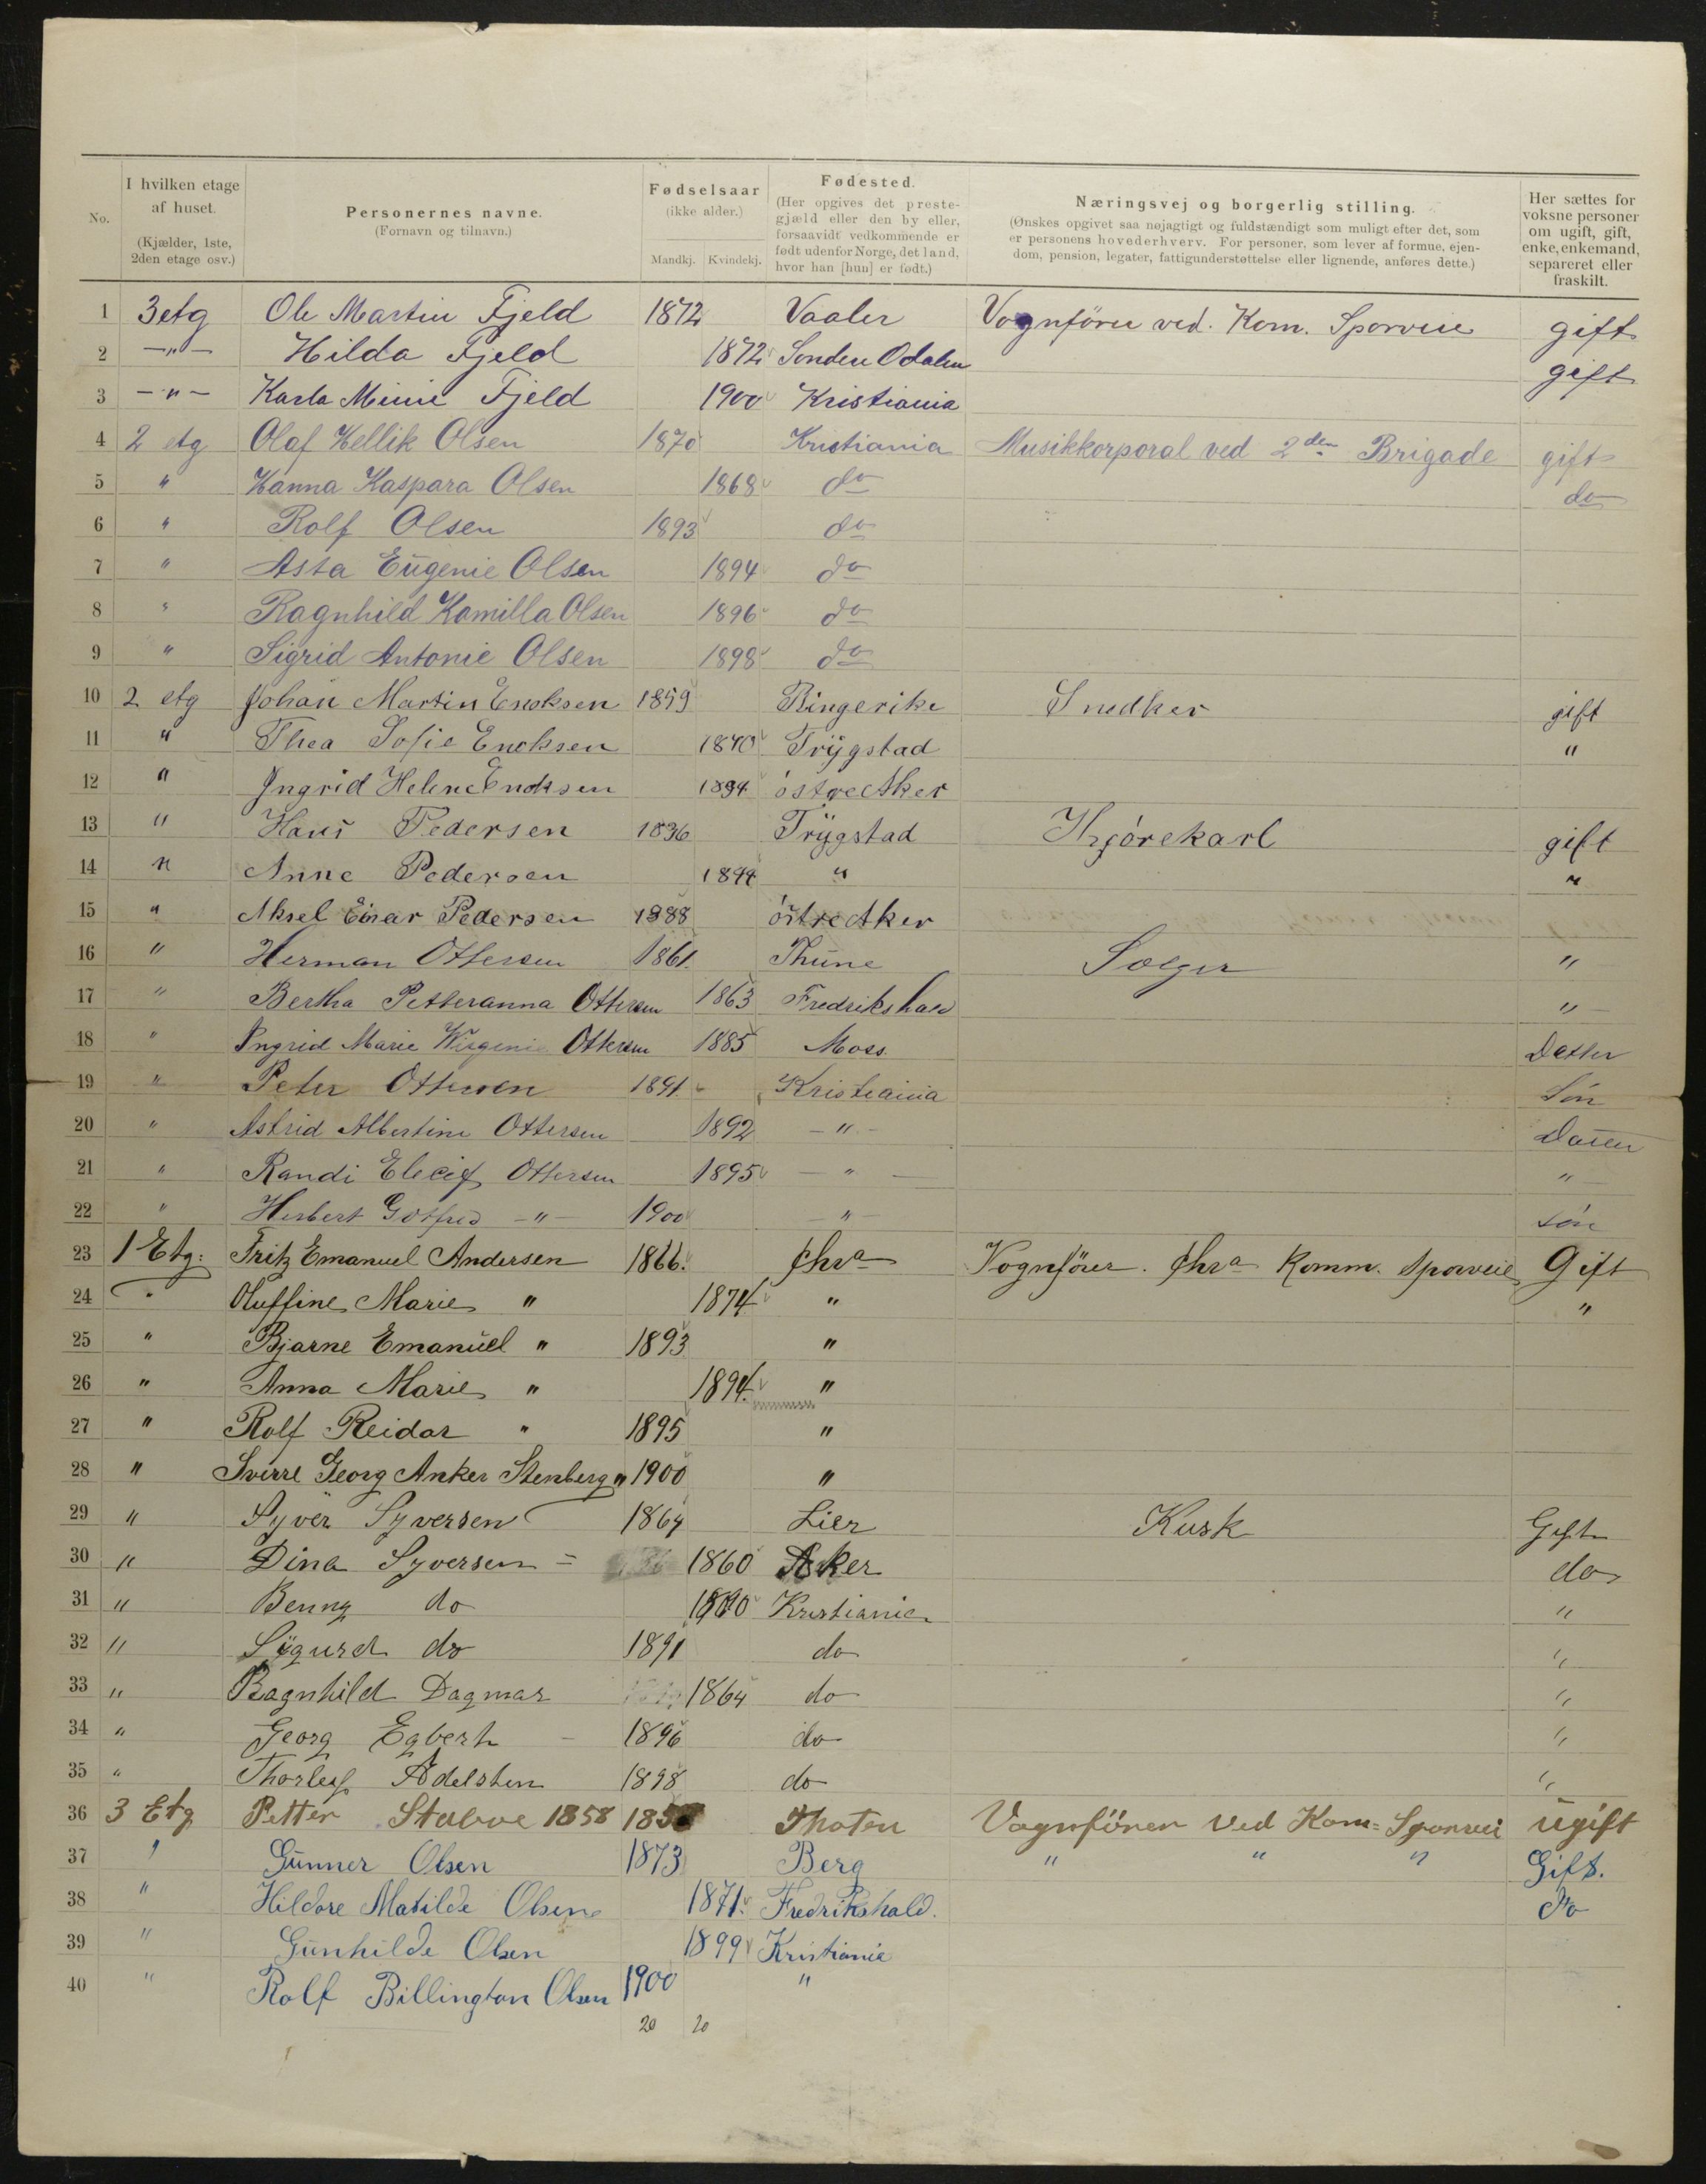 No. | I hvilken etage af huset. (Kjælder, 1ste, 2den etage osv.) | Personernes navne. (Fornavn og tilnavn.) | Fødselsaar (ikke alder.) Mandkj. Kvindekj. | Fødested. (Her opgives det prestegjæld eller den by eller, forsaavidt vedkommende er født udenfor Norge, det land, hvor han [hun] er født.) | Næringsvej og borgerlig stilling. (Ønskes opgivet saa nøjagtigt og fuldstændigt som muligt efter det, som er personens hovederhverv. For personer, som lever af formue, ejendom, pension, legater, fattigunderstøttelse eller lignende, anføres dette.) | Her sættes for voksne personer om ugift, gift, enke, enkemand, separeret eller fraskilt.
1 3 etg Ole Martin Fjeld 1872 Vaaler Vognförer ved. Kom. Sporveie gift
2 —"— Hilda Fjeld 1872 Sondre Odalen gift
3 —"— Karla Minni Fjeld 1900 Kristiania
4 2 etg Olaf Hellik Olsen 1870 Kristiania Musikkorporal ved 2den Brigade gift
5 " Hanna Kaspara Olsen 1868 do do
6 " Rolf Olsen 1893 do
7 " Asta Eugenie Olsen 1894 do
8 " Ragnhild Kamilla Olsen 1896 do
9 " Sigrid Antonie Olsen 1898 do
10 2 etg Johan Martin Ericksen 1859 Ringerike Snedker gift
11 " Thea Sofie Ericksen Trygstad "
12 " Ingrid Helene Ericksen 1894 östre Aker
13 " Hans Pedersen 1836 Trygstad Kjørekarl gift
14 " Anne Pedersen " "
15 " Aksel Einar Pedersen 1888 östre Aker
16 " Herman Ottersen 1861. Thune "
17 " Bertha Petteranna Ottersen 1863 Fredrikshald "
18 " Ingrid Marie Ottersen 1885 Moss. Datter
19 " Peter Ottersen 1891 Kristiania Sön
20 " Astrid Albertine Ottersen 1892 —"— Datter
21 " Randi Ottersen 1895 —"— "
22 " Herbert Gotfred —"— 1900 —"— sön
23 1 Etg: Fritz Emanuel Andersen 1866. Chra Vognförer. Chra Komm. Sporveie Gift
24 " Oluffine Marie " 1874 " "
25 " Bjarne Emanuel " 1893 "
26 " Anna Marie " 1894. "
27 " Rolf Reidar " 1895 "
28 " Sverre Georg Anker Stenberg " 1900 "
29 " Syver Syversen 1864 Lier Kusk Gift
30 " Dina Syversen = 1860 Aker do
31 " Benny do Kristiania "
32 " Sigurd do 1891 do "
33 " Ragnhild Dagmar 1864 do "
34 " Georg Egbert 1896 do "
35 " Thorleif Adelsten 1898 do "
36 3 Etg Petter Stubve 1858 Thoten Vognfören ved Kom= Sporvei ugift
37 " Gunner Olsen 1873 Berg " " " Gift.
38 " Hildore Matilde Olsen 1871. Fredrikshald. do
39 " Gunhilde Olsen 1899 Kristiania
40 " Rolf Billington Olsen 1900 "
20 20